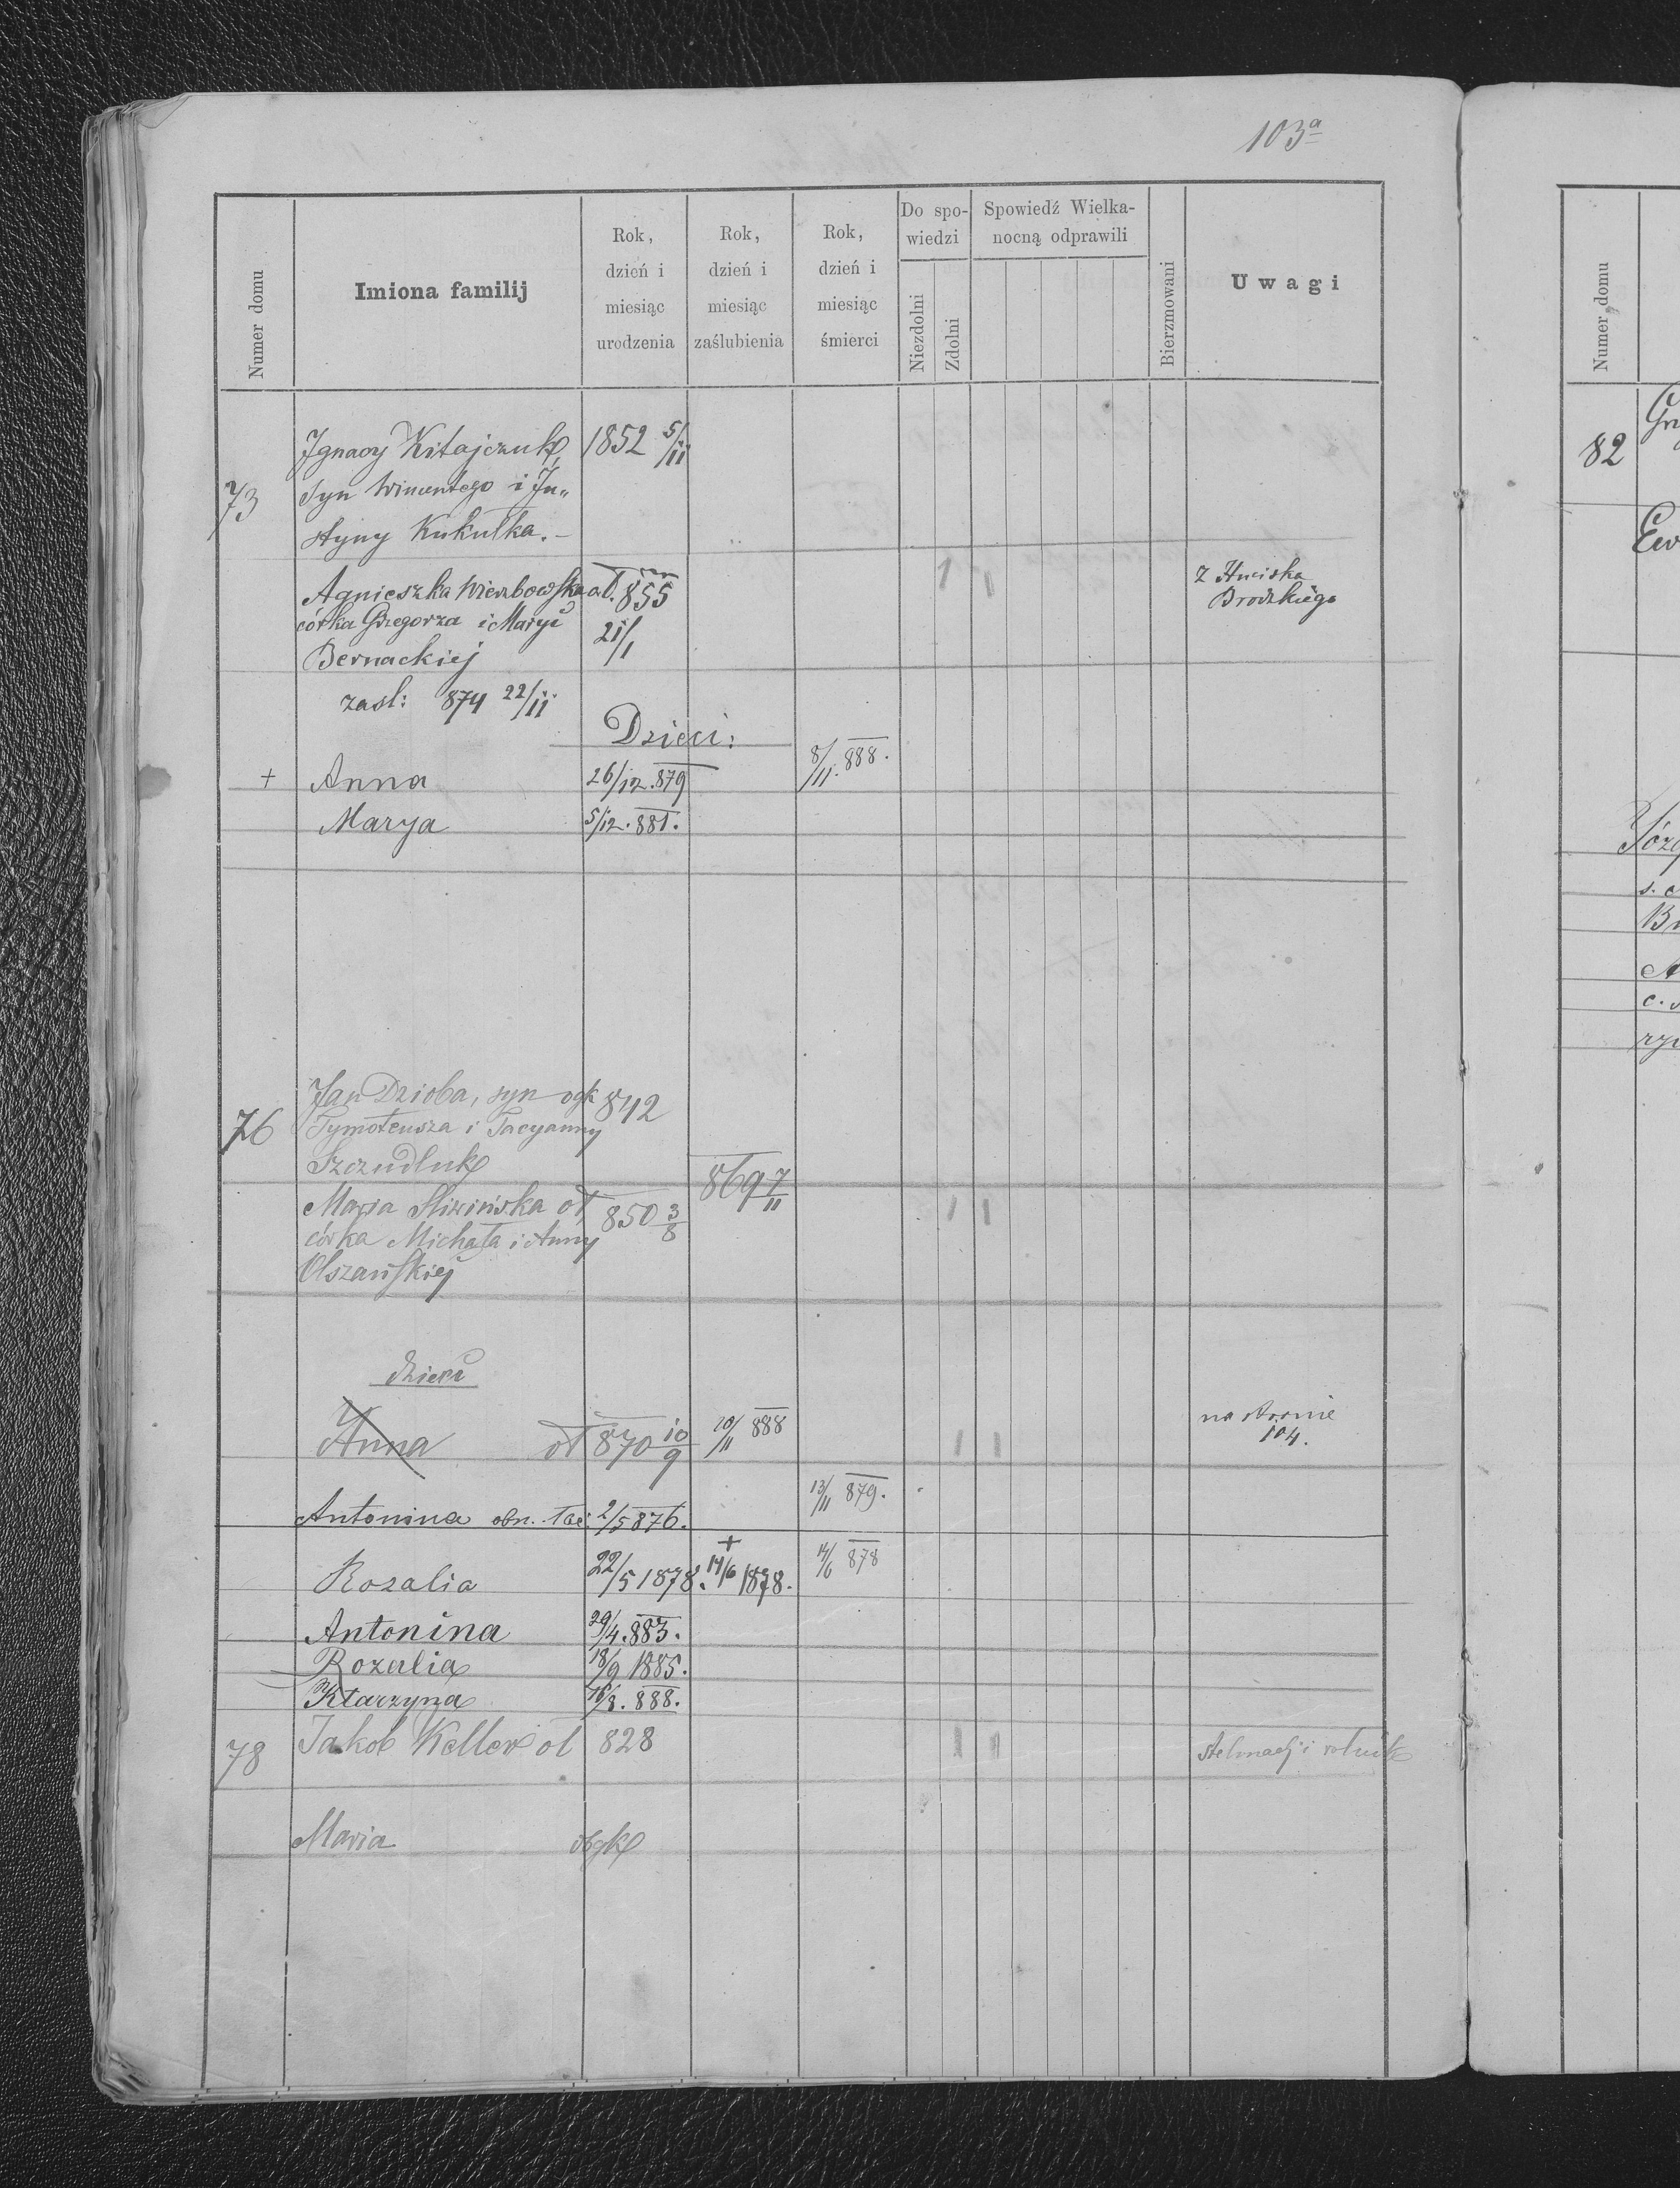 103a
Numer domu
Imiona familij
Rok, dzień i miesiąc urodzenia
Rok, dzień i miesiąc zaślubienia
Rok, dzień i miesiąc śmierci
Do spo-
wiedzi
Niezdolni
Zdolni
Spowiedź Wielka-
nocną odprawili
Bierzmowani
Uwagi
Ignacy Kitajczuk, 1852 5/11
73 syn Wincentego i Ju„
styny Kukułka.–
Agnieszka Wierzbowska ob. 855 z Huciska
córka Grzegorza i Maryi 21/1 Brodzkiego
Bernackiej
zasl: 874 22/11
Dzieci:
+ Anna 26/12.879 8/11.888.
Marya 5/12.881.
Jan Dzioba, syn ogk 842
76 Tymoteusza i Tacyanny
Szczudluk 869 7/11
Maria Sliwińska oł 850 3/8
córka Michała i Anny
Olszańskiej
dzieci
Anna oł 870 10/9 20/11 888 na stronie
104.
Antonina obr. łac. 2/5 876. 13/11 879.
Rozalia 22/5 1878. + 14/6 1878. 14/6 878
Antonina 29/4.883.
Rozalia 18/9 1885.
Ktarzyna 16/8.888.
78 Jakob Keller oł 828 stelmach i rolnik
Maria obgk
Numer domu
82